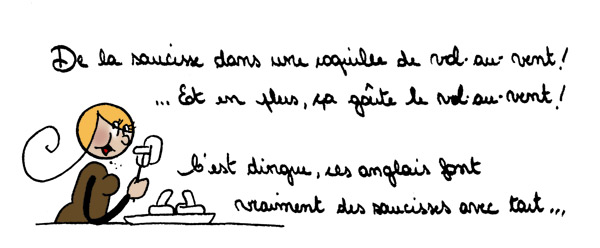 De la saucisse dans une coquille de vol-au-vent!
... Et en plus, ça goûte le vol-au-vent!
C'est dingue, ces anglais font
vraiment des saucisses avec tout...